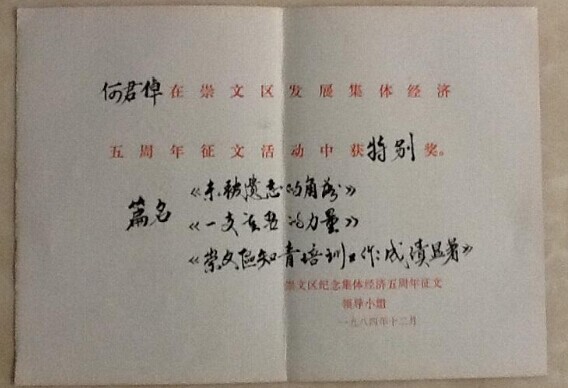 何君倬在崇文区发展集体经济
五周年征文活动中获特别奖。
篇名《未被遗忘的角落》
《一支活跃的力量》
《崇文区知青培训工作成绩显著》
崇文区纪念集体经济五周年征文
领导小组
一九八四年十二月